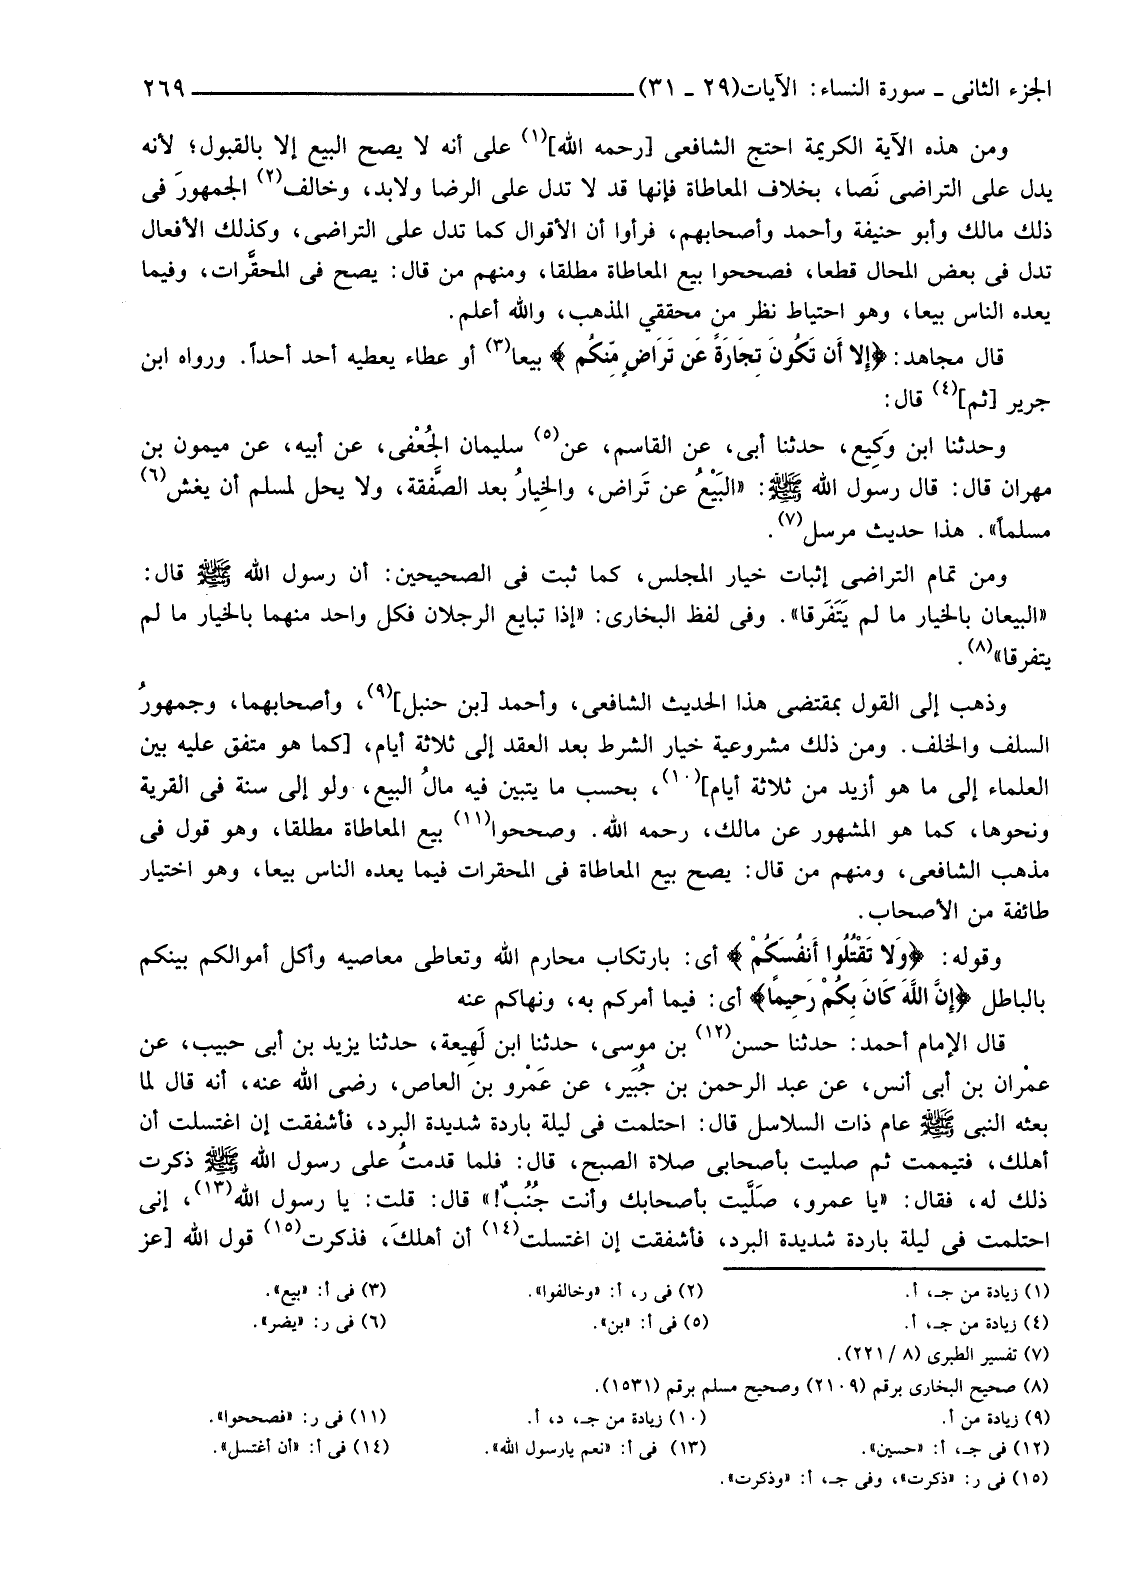 الجزء الثانى ـ سورة النساء: الآيات(٢٩ ـ ٣١) ٢٦٩
ومن هذه الآية الكريمة احتج الشافعى [رحمه الله](١) على أنه لا يصح البيع إلا بالقبول؛ لأنه
يدل على التراضى نَصا، بخلاف المعاطاة فإنها قد لا تدل على الرضا ولابد، وخالف(٢) الجمهورَ فى
ذلك مالك وأبو حنيفة وأحمد وأصحابهم، فرأوا أن الأقوال كما تدل على التراضى، وكذلك الأفعال
تدل فى بعض المحال قطعا، فصححوا بيع المعاطاة مطلقا، ومنهم من قال: يصح فى المحقَّرات، وفيما
يعده الناس بيعا، وهو احتياط نظر من محققي المذهب، والله أعلم.
قال مجاهد: ﴿إلا أَن تَكُونَ تِجَارَةً عَن تَرَاضٍ مِّنكُم﴾ بيعا(٣) أو عطاء يعطيه أحد أحداً. ورواه ابن
جرير [ثم](٤) قال:
وحدثنا ابن وَكِيع، حدثنا أبى، عن القاسم، عن(٥) سليمان الجُعْفى، عن أبيه، عن ميمون بن
مهران قال: قال رسول الله ﷺ: «البَيْعُ عن تَراض، والخِيارُ بعد الصَّفقة، ولا يحل لمسلم أن يغش(٦)
مسلماً». هذا حديث مرسل(٧).
ومن تمام التراضى إثبات خيار المجلس، كما ثبت فى الصحيحين: أن رسول الله ﷺ قال:
«البيعان بالخيار ما لم يَتَفَرقا». وفى لفظ البخارى: «إذا تبايع الرجلان فكل واحد منهما بالخيار ما لم
يتفرقا»(٨).
وذهب إلى القول بمقتضى هذا الحديث الشافعى، وأحمد [بن حنبل](٩)، وأصحابهما، وجمهورُ
السلف والخلف. ومن ذلك مشروعية خيار الشرط بعد العقد إلى ثلاثة أيام، [كما هو متفق عليه بين
العلماء إلى ما هو أزيد من ثلاثة أيام](١٠)، بحسب ما يتبين فيه مالُ البيع، ولو إلى سنة فى القرية
ونحوها، كما هو المشهور عن مالك، رحمه الله. وصححوا(١١) بيع المعاطاة مطلقا، وهو قول فى
مذهب الشافعى، ومنهم من قال: يصح بيع المعاطاة فى المحقرات فيما يعده الناس بيعا، وهو اختيار
طائفة من الأصحاب.
وقوله: ﴿وَلا تَقْتُلُوا أَنفُسَكُمْ﴾ أى: بارتكاب محارم الله وتعاطى معاصيه وأكل أموالكم بينكم
بالباطل ﴿إِنَّ اللَّهَ كَانَ بِكُمْ رَحِيمًا﴾ أى: فيما أمركم به، ونهاكم عنه
قال الإمام أحمد: حدثنا حسن(١٢) بن موسى، حدثنا ابن لَهِيعة، حدثنا يزيد بن أبى حبيب، عن
عمْران بن أبى أنس، عن عبد الرحمن بن جُبَير، عن عَمْرو بن العاص، رضى الله عنه، أنه قال لما
بعثه النبى ﷺ عام ذات السلاسل قال: احتلمت فى ليلة باردة شديدة البرد، فأشفقت إن اغتسلت أن
أهلك، فتيممت ثم صليت بأصحابى صلاة الصبح، قال: فلما قدمتُ على رسول الله ﷺ ذكرت
ذلك له، فقال: «يا عمرو، صَلَّيت بأصحابك وأنت جُنُبٌ!» قال: قلت: يا رسول الله(١٣)، إنى
احتلمت فى ليلة باردة شديدة البرد، فأشفقت إن اغتسلت(١٤) أن أهلكَ، فذكرت(١٥) قول الله [عز
(١) زيادة من جـ، أ. (٢) فى ر، أ: «وخالفوا». (٣) فى أ: «بيع».
(٤) زيادة من جـ، أ. (٥) فى أ: «بن». (٦) فى ر: «يضر».
(٧) تفسير الطبرى (٨ / ٢٢١).
(٨) صحيح البخارى برقم (٢١٠٩) وصحيح مسلم برقم (١٥٣١).
(٩) زيادة من أ. (١٠) زيادة من جـ، د، أ. (١١) فى ر: «فصححوا».
(١٢) فى جـ، أ: «حسين». (١٣) فى أ: «نعم يارسول الله». (١٤) فى أ: «أن أغتسل».
(١٥) فى ر: «ذكرت»، وفى جـ، أ: «وذكرت».